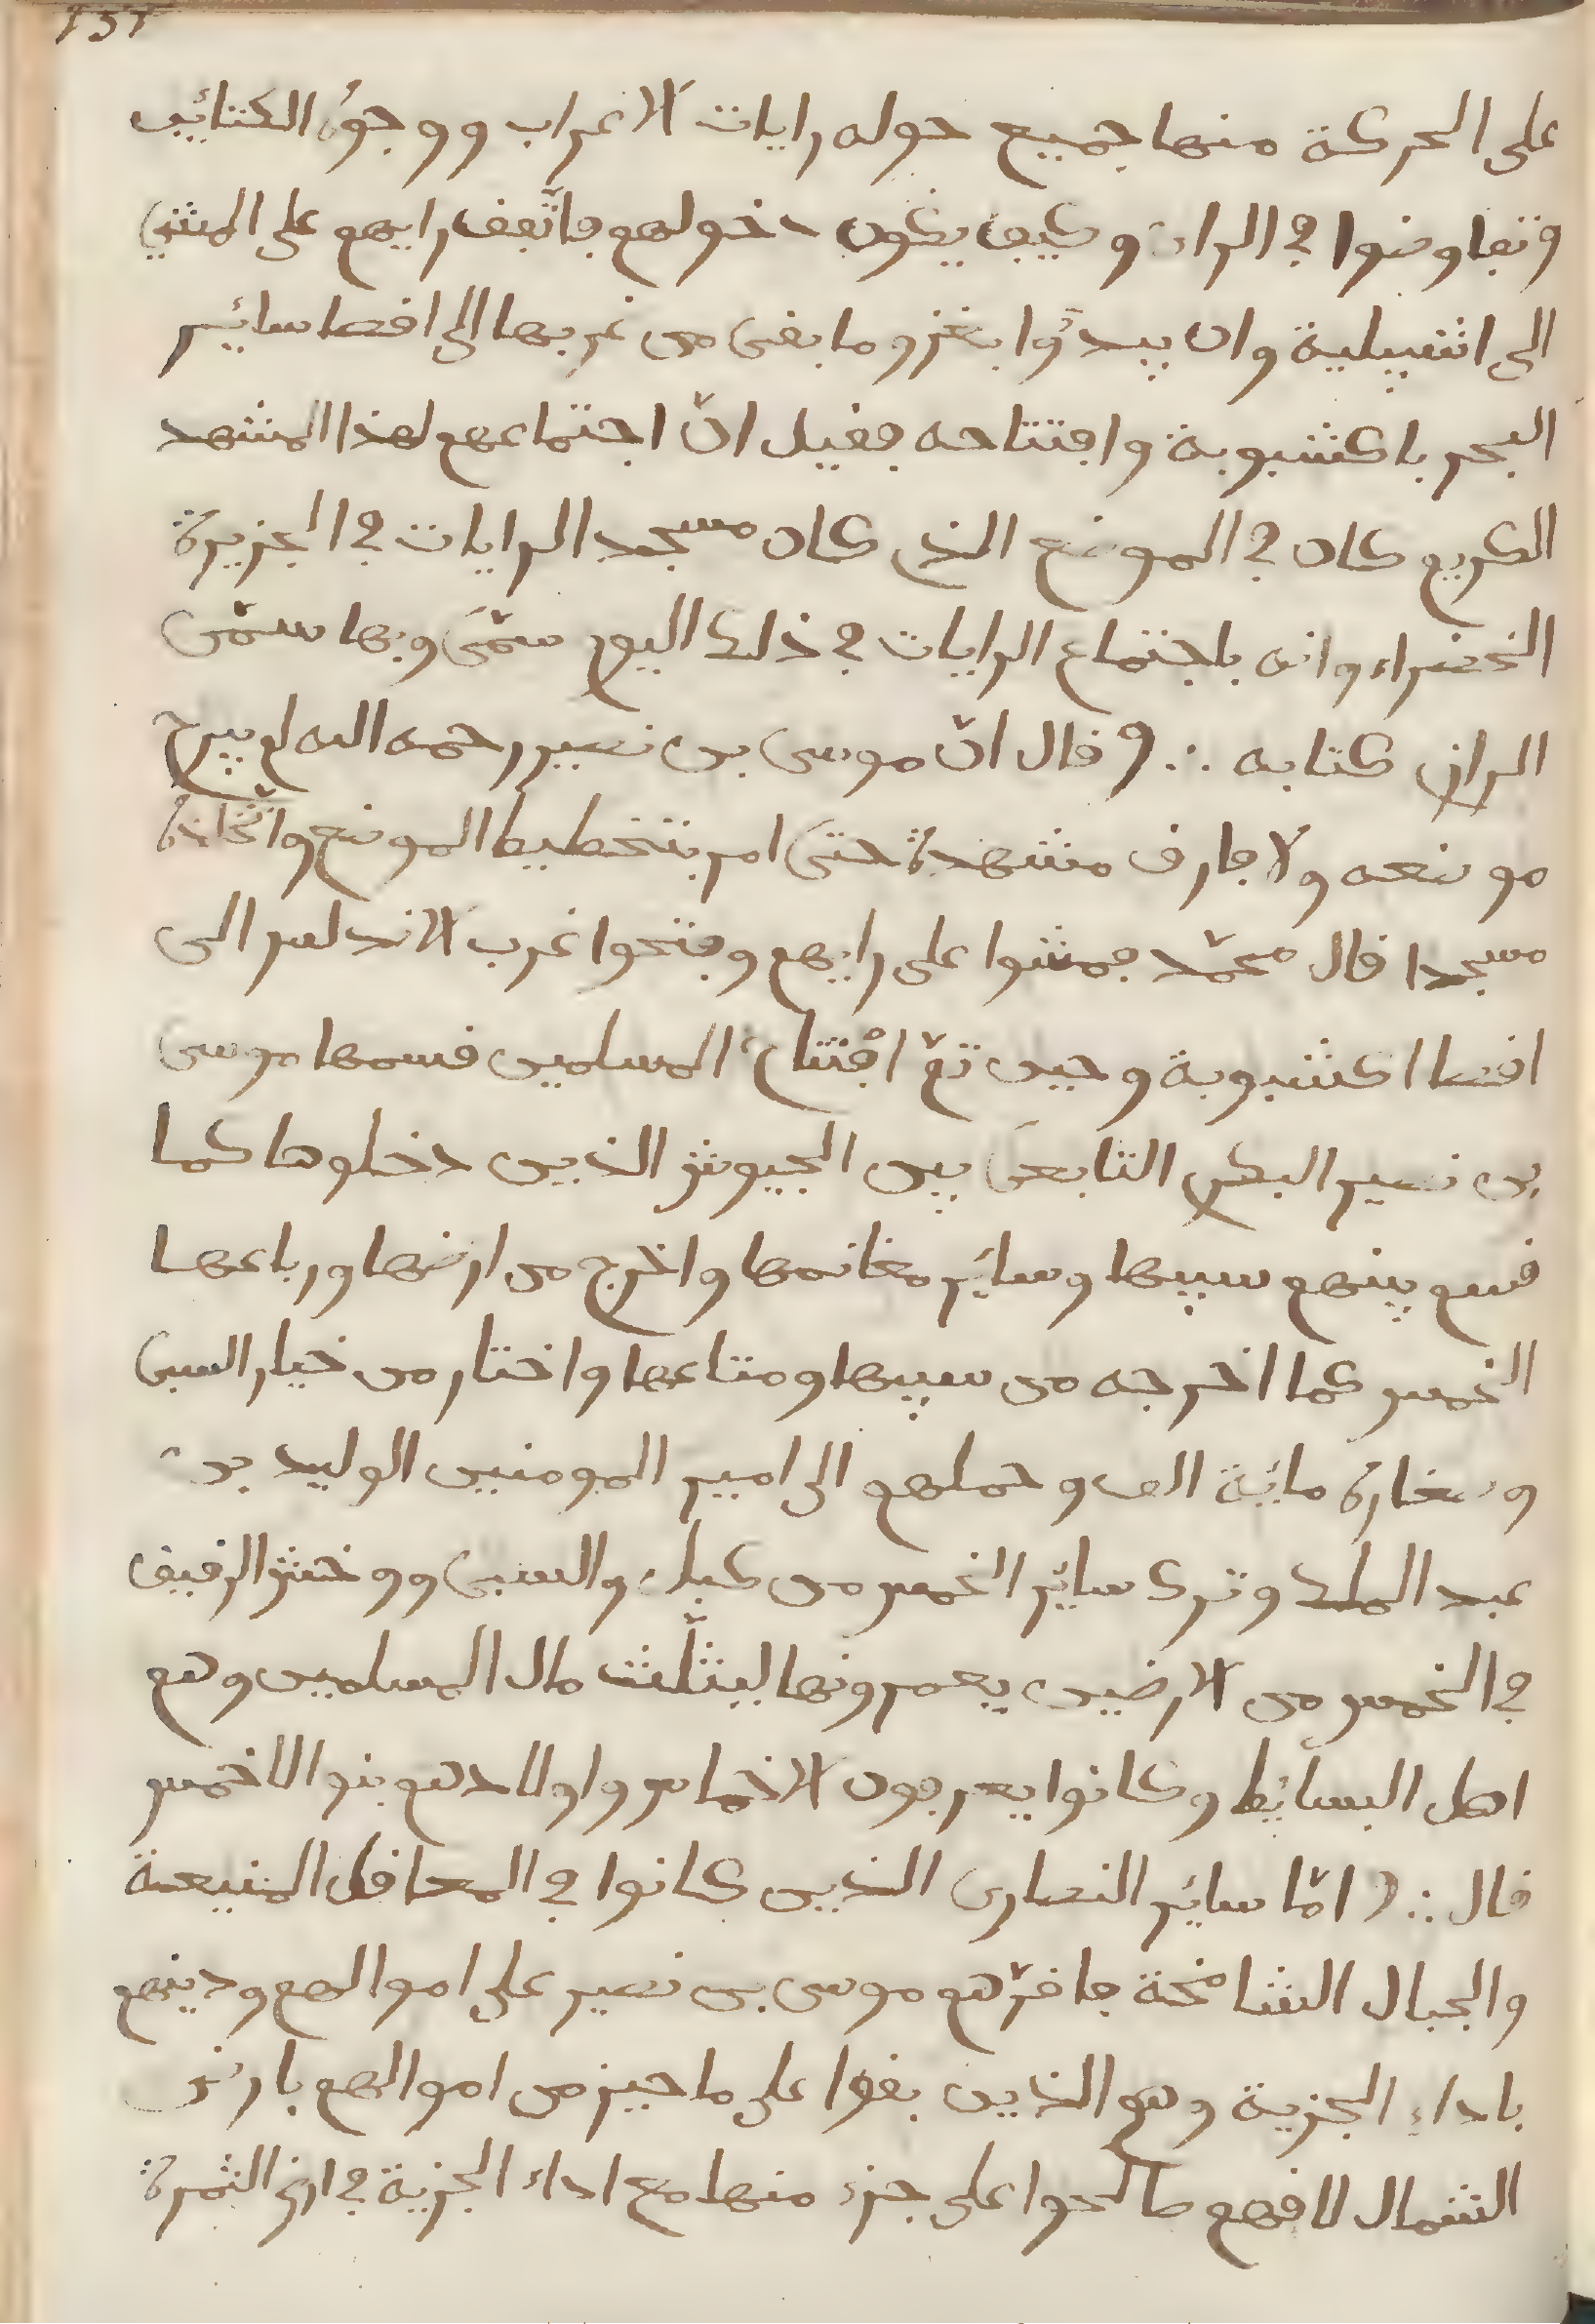 151
على الحركة منها جميع حوله رايات الاعراب ووجوه الكتائب
وتفاوضوا في الراي وكيف يكون دخولهم فاتّفق رايهم على المشي
الى اشبيلية وان يبدؤا بغزو ما بقى من غربها الى اقصا سائير
البحر باكشبوبة وافتتاحه فقيل انّ اجتماعهم لهذا المشهد
الكريم كان في الموضع الذي كان مسجد الرايات في الجزيرة
الخضراء وانه باجتماع الرايات في ذلك اليوم سمّى وبها سمّى
الرازي كتابه ∴ وقال انّ موسى بن نصير رحمه الله لم يبرح
موضعه ولا فارق مشهدة حتى امر بتخطيط الموضع واتّخاذه
مسجدا قال محمّد فمشوا على رايهم وفتحوا غرب الاندلس الى
اقصا اكشبوبة وحين تمّ افْتتاح المسلمين قسمها موسى
بن نصير البكري التابعى بين الجيوش الذين دخلوها كما
قسم بينهم سبيها وسائير مغانمها واخرج من ارضها ورباعها
الخمس كما اخرجه من سبيها ومتاعها واختار من خيار السبى
وصغاره مائية الف وحملهم الى امير المومنين الوليد بن
عبد الملك وترك سائير الخمس من كبار والسبى ووخش الرقيق
في الخمس من الارضين يعمرونها ليثلّث مال المسلمين وهم
اهل البسائيط وكانوا يعرفون الاخماس واولادهم بنو الاخمس
قال ∴ و امّا سائير النصارى الذين كانوا في المعاقل المنيعة
والجبال الشامخة فاقرّهم موسى بن نصير على اموالهم ودينهم
باداء الجزية وهم الذين بقوا على ما حيز من اموالهم بارض
الشمال لاقهم صالحوا على جزء منها مع اداء الجزية في ارض الثمرة